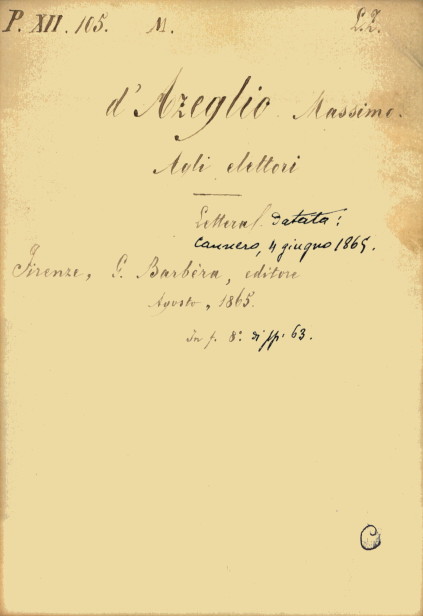 P. XII. 105. M. L.I.
d'Azeglio Massimo.
Agli elettori
Lettera. datata:
Cannero, 4 giugno 1865.
Firenze, G. Barbèra, editore
Agosto, 1865.
In f. 8º di pp. 63.
C